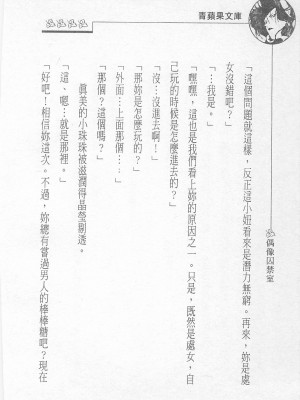 青蘋果文庫
偶像囚禁室
「這個問題就這樣，反正這小妞看來是潛力無窮。再來，妳是處
女沒錯吧？」
「…我是。」
「嘿嘿，這也是我們看上妳的原因之一。只是，既然是處女，自
己玩的時候是怎麼進去的？」
「沒…沒進去啊！」
「那妳是怎麼玩的？」
「外面…上面那個…」
「那個？這個嗎？」
真美的小珠珠被滋潤得晶瑩剔透。
「這、嗯…就是那裡。」
「好吧！相信妳這次。不過，妳總有嘗過男人的棒棒糖吧？現在